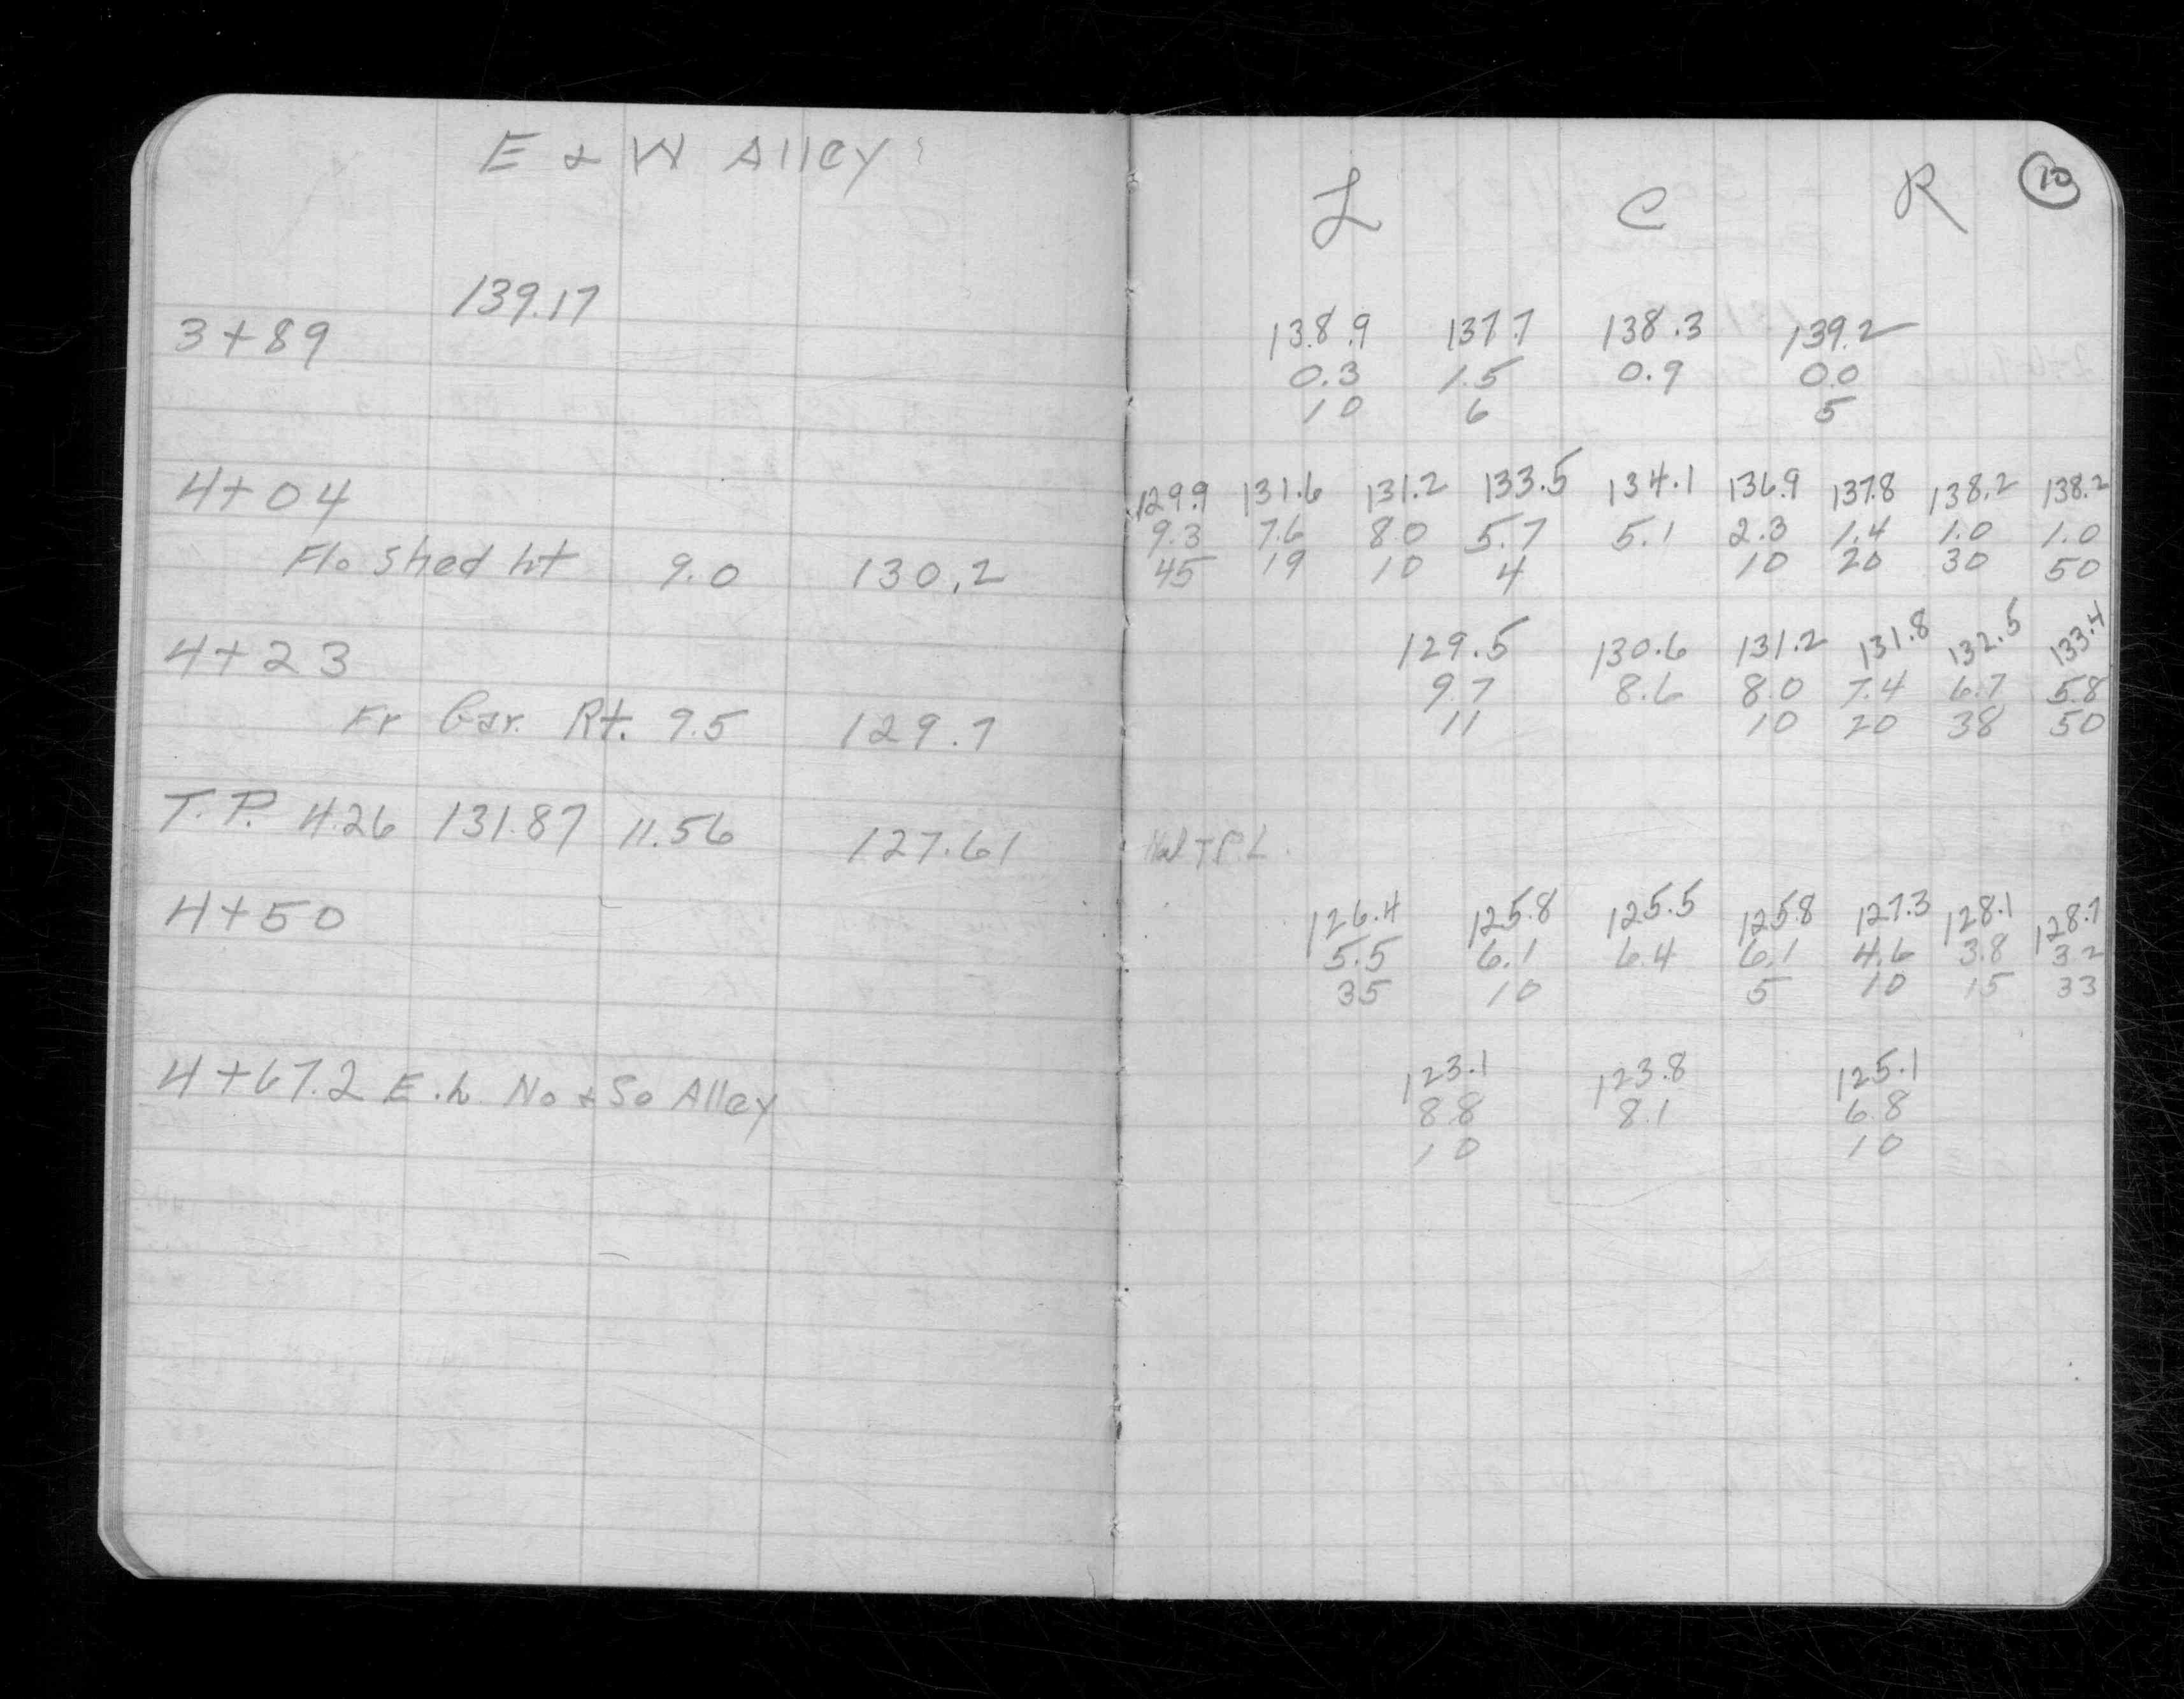 E & W Alley
139.17
3+89
4+04
Flo Shed Lt 9.0 130.2
4+23
Fr Gar. Rt. 9.5 129.7
T.P. 4.26 131.87 11.56 127.61
4+50
4+67.2 E.L. No & So Alley
L C R 10
138.9 137.7 138.3 139.2
0.3 1.5 0.9 0.0
10 6 5
129.9 131.6 131.2 133.5 134.1 136.9 137.8 138.2 138.2
9.3 7.6 8.0 5.7 5.1 2.3 1.4 1.0 1.0
45 19 10 4 10 20 30 50
129.5 130.6 131.2 131.8 132.5 133.4
9.7 8.6 8.0 7.4 6.7 5.8
11 10 20 38 50
T.P. L.
126.4 125.8 125.5 125.8 127.3 128.1 128.7
5.5 6.1 6.4 6.1 4.6 3.8 3.2
35 10 5 10 15 33
123.1 123.8 125.1
8.8 8.1 6.8
10 10